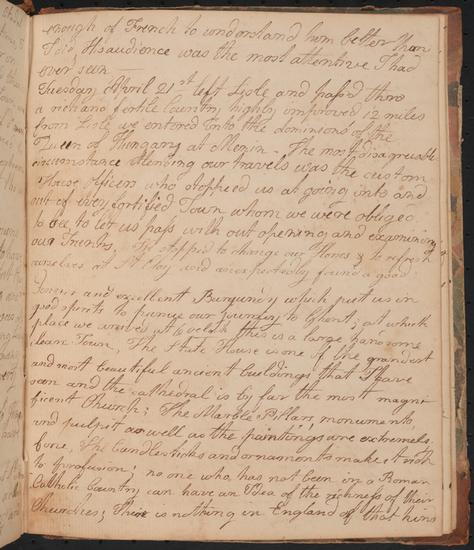 enough of French to understand him better than
I did, His audience was the most attentive I had
ever seen
Tuesday April 21st left Lisle and pass'd thro
a rich and fertile Country highly improved 12 miles
from Lisle we entered into the dominions of the
Queen of Hungary at Menin - The most disagreeable
circumstance attending our travels was the custom
House officers who stopped us at going into and
out of every fortified Town whom we were obliged
to fee to let us pass with out opening and examining
our Trunks. We stopped to change our Horses & to refresh
ourselves at St Eloy, and unexpectedly found a good
dinner and excellent Burgundy which put us in
good spirits to pursue our journey to Ghent; at which
place we arrived at 6 oclock this is a large handsome
clean Town, The State House is one of the grandest
and most beautiful ancient buildings that I have
seen and the cathedral is by far the most magni
ficent Church; The Marble Pillars, monuments,
and pulpit as well as the paintings are extremely
fine, The Candlesticks and ornaments make it rich
to profusion; no one who has not been in a Roman
Catholic Country can have an Idea of the richness of their
Churches; There is nothing in England of that kind